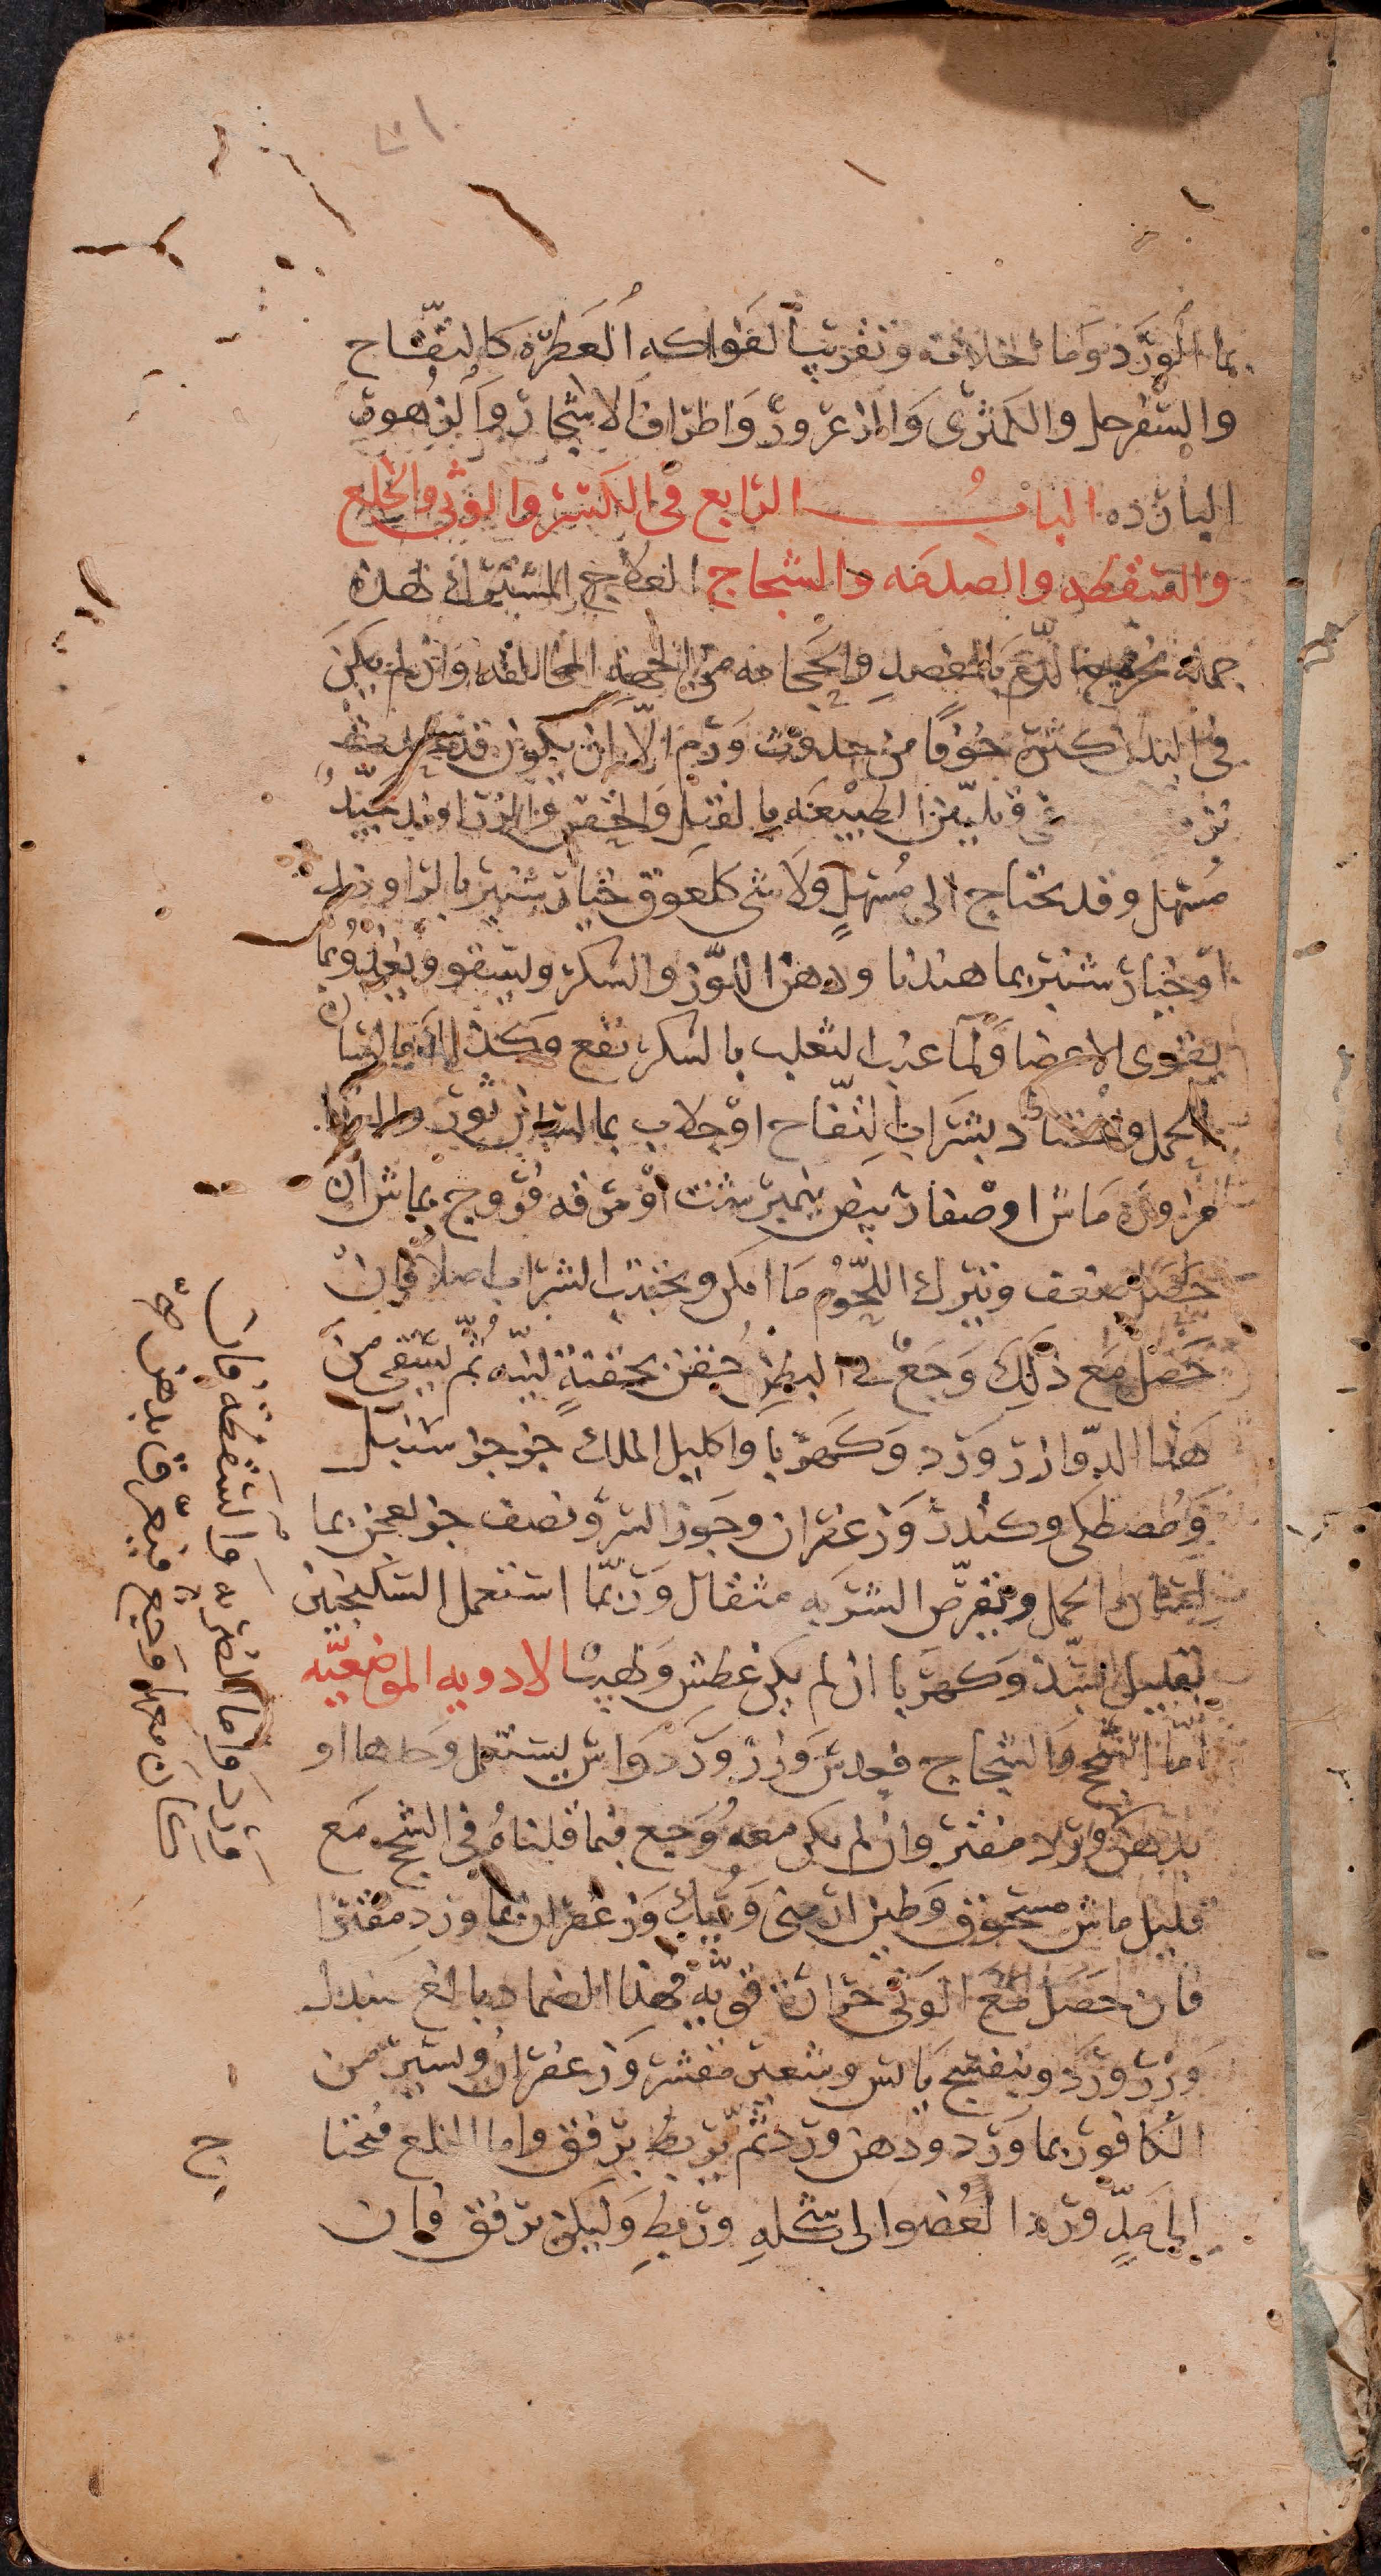 بما الورد وما الخلاف وتقريب الفواكه العطرة كالتفاح
والسفرجل والكمثرى والزعرور واطراف الاشجار والزهور
الباردة الباب الرابع في الكسر والوثى والخلع
والسقطه والصدمه والشجاج العلاج المشترك لهذه
جملة الدم بالفصد والحجامه من الجهة المخالفه وان لم يكن
في البدن كثرة خوفا من حدوث ورم الا ان يكون قد
وتليين الطبيعة بالفتل والحقن
مسهل وقد يحتاج الى مسهل ولا شى كلعوق خيار شنبر بالراوند
او خيار شنبر بما هندبا ودهن اللوز والسكر وليسقو وبما
يقوى الاعضا ولما عنب الثعلب بالسكر نفع وكذلك ما لسان
الحمل بشراب التفاح او جلاب بما لسان ثور
مزورة ماش او صفار بيض نيمبرشت او مرقه فروج بماش ان
حصل ضعف وتترك اللحوم ما امكن ويجتنب الشراب اصلا فان
حصل مع ذلك وجع في البطن حقن بحقنة لينه ثم يسقى من
هذا الدوا زر ورد وكهربا واكليل الملك جز جز سنبل
ومصطكى وكندر وزعفران وجوز السرو نصف جز يعجن بما
لسان الحمل ويقرص الشربه مثقال وربما استعمل السكنجبين
بقليل وكهربا ان لم يكن عطش ولهيب الادويه الموضعيه
اما الشج والشجاج فعدس وزر ورد واس يستعمل وحدها او
بدهن ورد مفتر وان لم يكن معه وجع فبما قلناه في الشج مع
قليل ماش مسحوق وطين ارمنى وزعفران بما ورد مفترا
فان حصل مع الوثى حرارة قويه فهذا الضماد بالغ صندل
وزر ورد وبنفسج يابس وشعير مقشر وزعفران ويسير من
الكافور بما ورد ودهن ورد ثم يربط برفق واما الخلع فيحتاج
الى مد ورد العضو الى شكله وربط وليكن برفق فان
واما الضربه والسقطه فان
كان معها وجع فيعرق بدهن
ورد